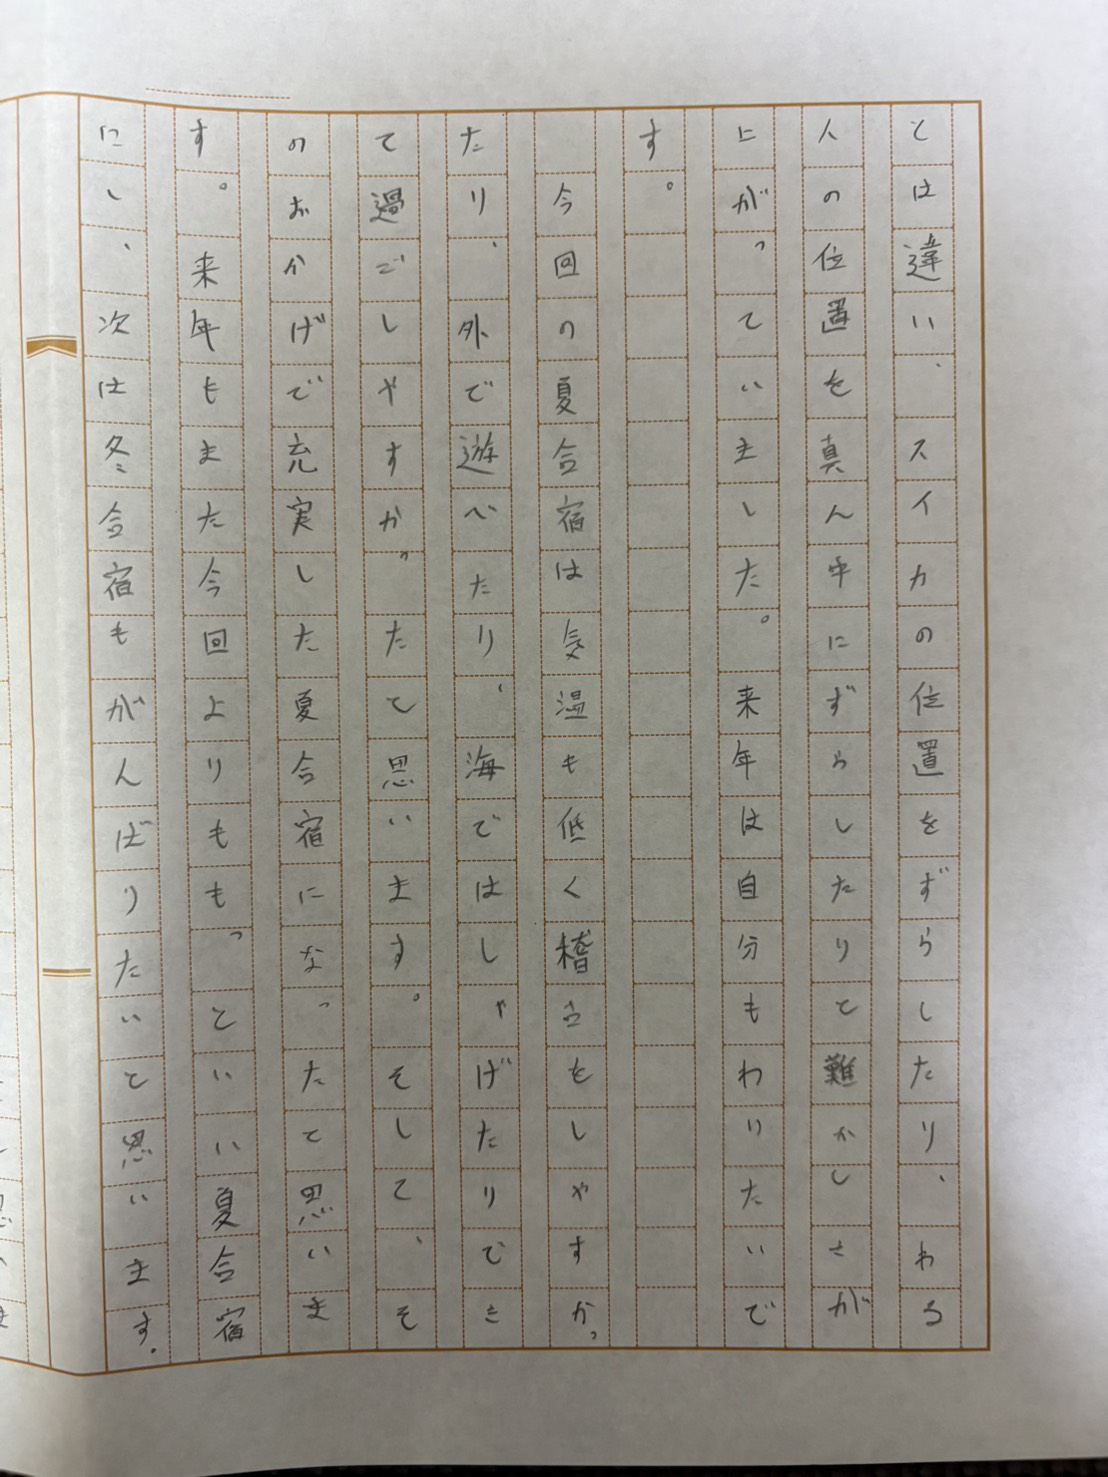 とは違い、スイカの位置をずらしたり、わる
人の位置を真ん中にずらしたりと難かしさが
上がっていました。来年は自分もわりたいで
す。
今回の夏合宿は気温も低く稽古もしやすかっ
たり、外で遊べたり、海ではしゃげたりでき
て過ごしやすかったと思います。そして、そ
のおかげで充実した夏合宿になったと思いま
す。来年もまた今回よりももっといい夏合宿
にし、次は冬合宿もがんばりたいと思います。